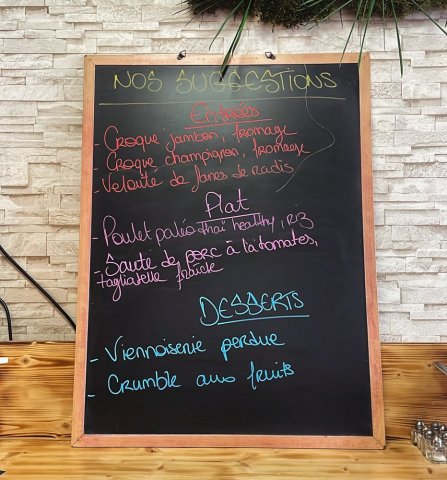 NOS SUGGESTIONS
Entrées
- Croque jambon, fromage
- Croque champignon, fromage
- Velouté de fanes de radis
Plat
- Poulet paléo thaï healthy, riz
- Sauté de porc à la tomates,
tagliatelle fraîche
DESSERTS
- Viennoiserie perdue
- Crumble aux fruits